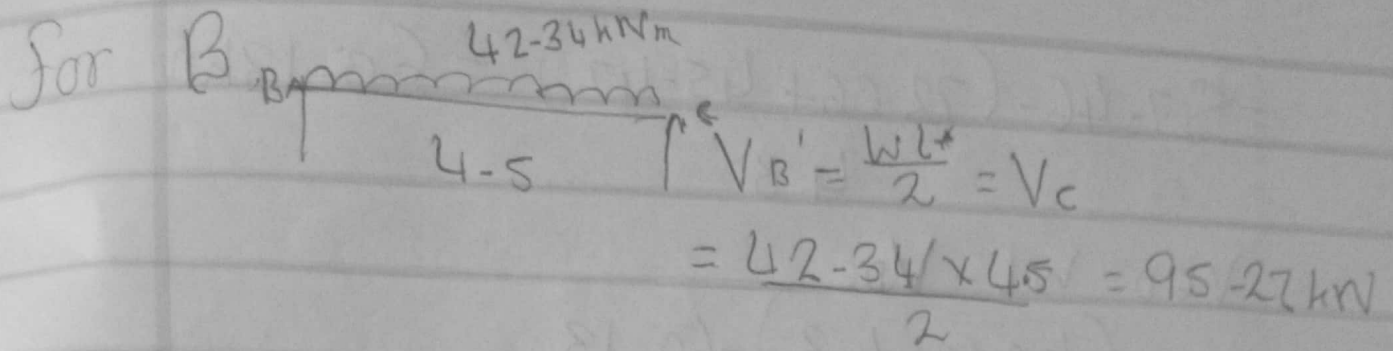 for B 42-34kNm
B C
4-5 V_B' = WL/2 = V_C
= 42-34 x 4.5 / 2 = 95-27 kN